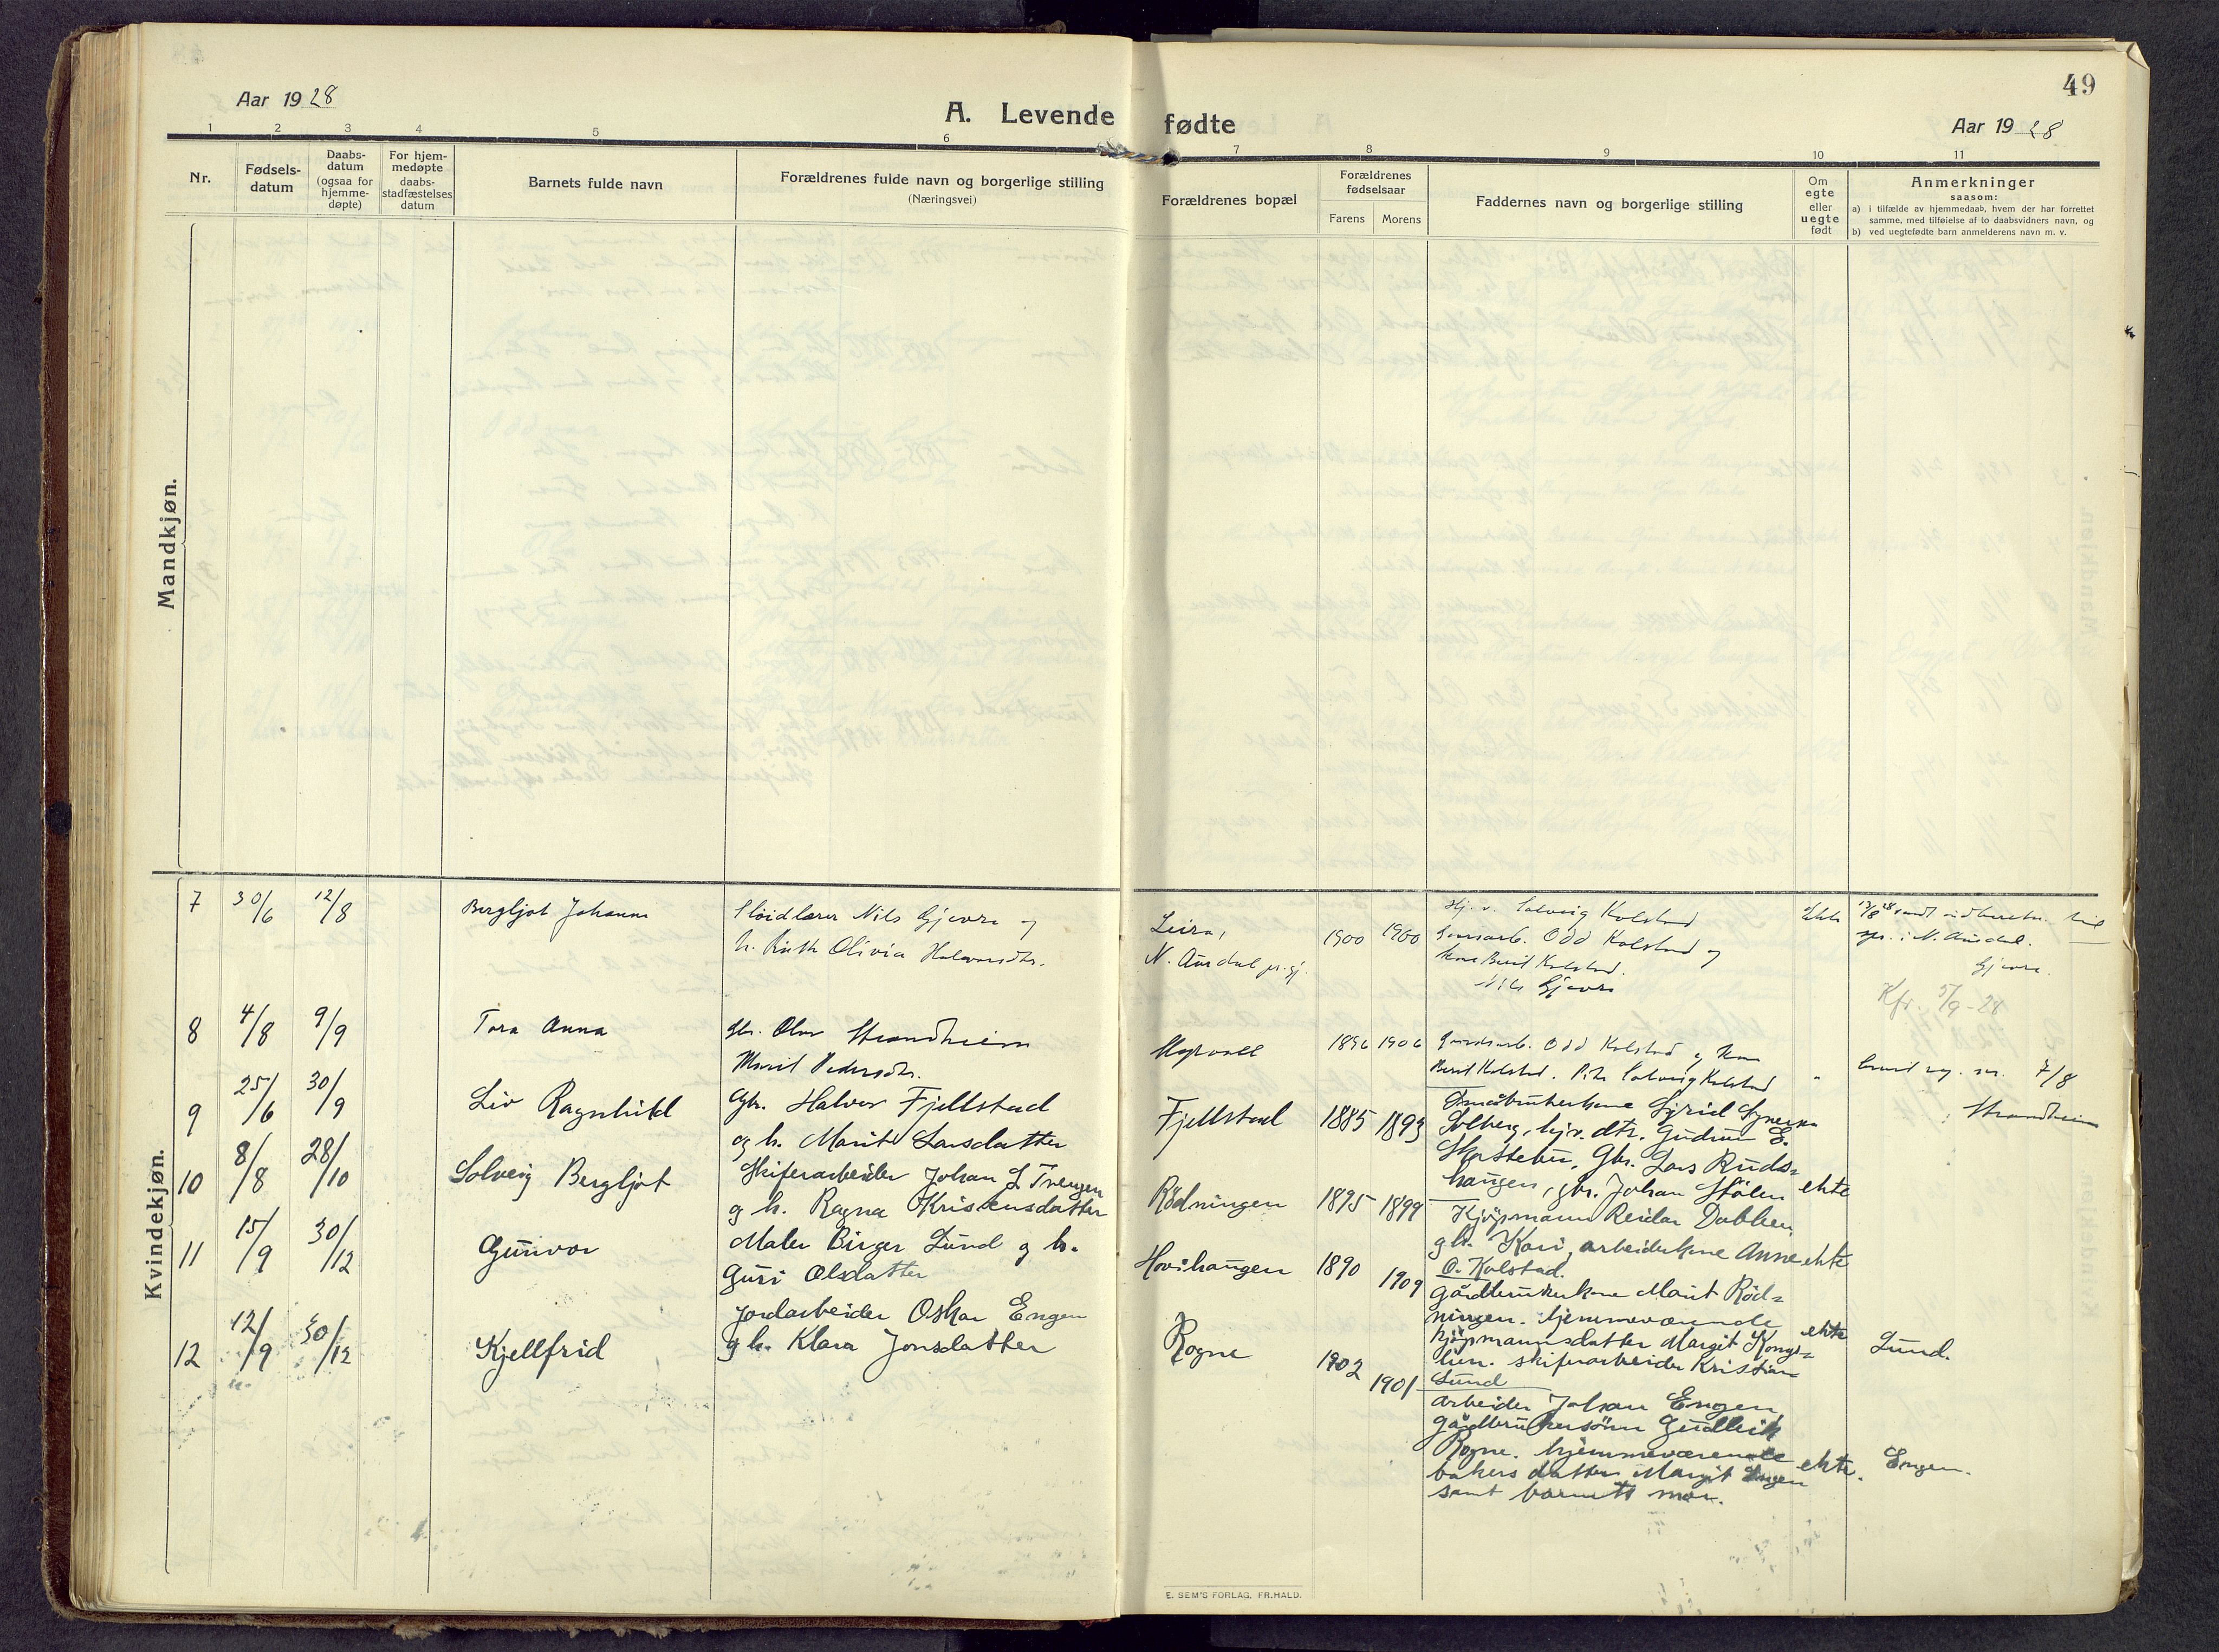 49
Aar 1928
A. Levende fødte
Aar 1928
1 2 3 4 5 6 7 8 9 10 11
Nr.
Fødsels-
datum
Daabs-
datum
(ogsaa for
hjemme-
døpte)
For hjem-
medøpte
daabs-
stadfæstelses
datum
Barnets fulde navn
Forældrenes fulde navn og borgerlige stilling
(Næringsvei)
Forældrenes bopæl
Forældrenes
fødselsaar
Farens Morens
Faddernes navn og borgerlige stilling
Om
egte
eller
uegte
født
Anmerkninger
saasom:
a) i tilfælde av hjemmedaab, hvem der har forrettet
samme, med tilføielse af to daabsvidners navn, og
b) ved uegtefødte barn anmelderens navn m. v.
Mandkjøn.
Kvindekjøn.
7 30/6 12/8 Bergljot Johanne
Sløidlærer Nils Gjevre og
h. Ruth Olivia Halvorsdtr.
Leira,
N. Aurdal pr.gj.
1900 1900
Hj. v. Solveig Kolstad
Gaardsarb. Odd Kolstad og
kone Berit Kolstad.
Nils Gjevre
Ekte
N. Aurdal.
Gjevre.
Kfr. 5/9-28
8 4/8 9/9 Tora Anna
Gbr. Olav Strandheim
Marit Pedersdtr.
1896 1906
Gaardsarb. Odd Kolstad og kone
Berit Kolstad. Pike Solveig Kolstad
"
7/8
Strandheim
9 25/6 30/9 Liv Ragnhild
Gbr. Halvor Fjellstad
og h. Marit Larsdatter
Fjellstad
1885 1893
Småbrukerkone Sigrid
Solberg, hjv. dtr. Gudrun E.
Skattebu, Gbr. Lars Ruds=
haugen, gbr. Johan Stølen
ekte
10 8/8 28/10 Solveig Bergljot
Skiferarbeider Johan L Trengen
g h. Ragna Kristensdatter
Rødningen
1895 1899
Kjøpmann Reidar Dobben
g h. Kari, arbeiderkone Anne
O. Kolstad.
ekte
11 15/9 30/12 Gunvor
Maler Birger Lund g h.
Guri Olsdatter
Hovihaugen
1890 1909
Gårdbrukerkone Marit Rød=
ningen. hjemmeværende
kjøpmannsdatter Margit Kongs=
lien. skiferarbeider Kristian
Lund
ekte
Lund.
12 12/9 30/12 Kjellfrid
Jordarbeider Oskar Engen
g h. Klara Jonsdatter
Rogne
1902 1901
Arbeider Johan Engen,
Gårdbrukersønn Gudleik
Rogne. hjemmeværende
bakersdatter Margit Engen
samt barnets mor.
ekte.
Engen.
E. SEM'S FORLAG, FR.HALD.